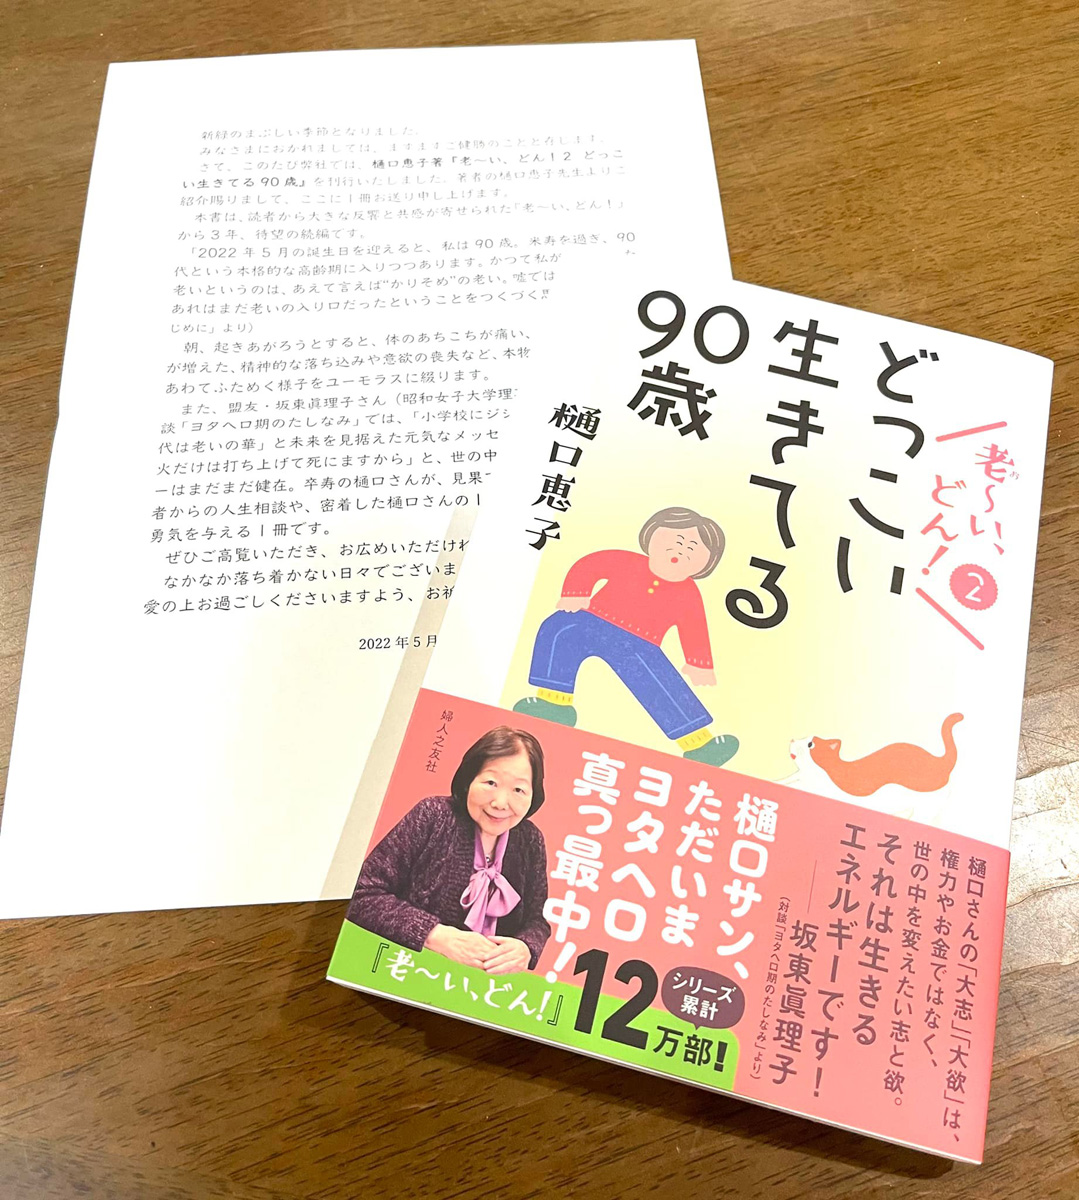 新緑のまぶしい季節となりました。
みなさまにおかれましては、ますますご健勝のことと存じます。
さて、このたび弊社では、樋口恵子著『老〜い、どん!2 どっこ
い生きてる90歳』を刊行いたしました。著者の樋口恵子先生よりご
紹介賜りまして、ここに1冊お送り申し上げます。
本書は、読者から大きな反響と共感が寄せられた『老〜い、どん!』
から3年、待望の続編です。
「2022年5月の誕生日を迎えると、私は90歳。米寿を過ぎ、90
代という本格的な高齢期に入りつつあります。かつて私が
老いというのは、あえて言えば“かりそめ”の老い。嘘では
あれはまだ老いの入り口だったということをつくづく
じめに」より)
朝、起きあがろうとすると、体のあちこちが痛い、
が増えた、精神的な落ち込みや意欲の喪失など、本物
あわてふためく様子をユーモラスに綴ります。
また、盟友・坂東眞理子さん(昭和女子大学理
談「ヨタヘロ期のたしなみ」では、「小学校にジ
代は老いの華」と未来を見据えた元気なメッセ
火だけは打ち上げて死にますから」と、世の中
ーはまだまだ健在。卒寿の樋口さんが、見果
者からの人生相談や、密着した樋口さんの1
勇気を与える1冊です。
ぜひご高覧いただき、お広めいただけれ
なかなか落ち着かない日々でございま
愛の上お過ごしくださいますよう、お祈
2022年5月
老〜い、
どん!
2
どっこい
生きてる
90歳
樋口恵子
婦人之友社
樋口サン、
ただいま
ヨタヘロ
真っ最中!
樋口さんの「大志」「大欲」は、
権力やお金ではなく、
世の中を変えたい志と欲。
それは生きる
エネルギーです!
——坂東眞理子
(対談「ヨタヘロ期のたしなみ」より)
『老〜い、どん!』
シリーズ
累計
12万部!